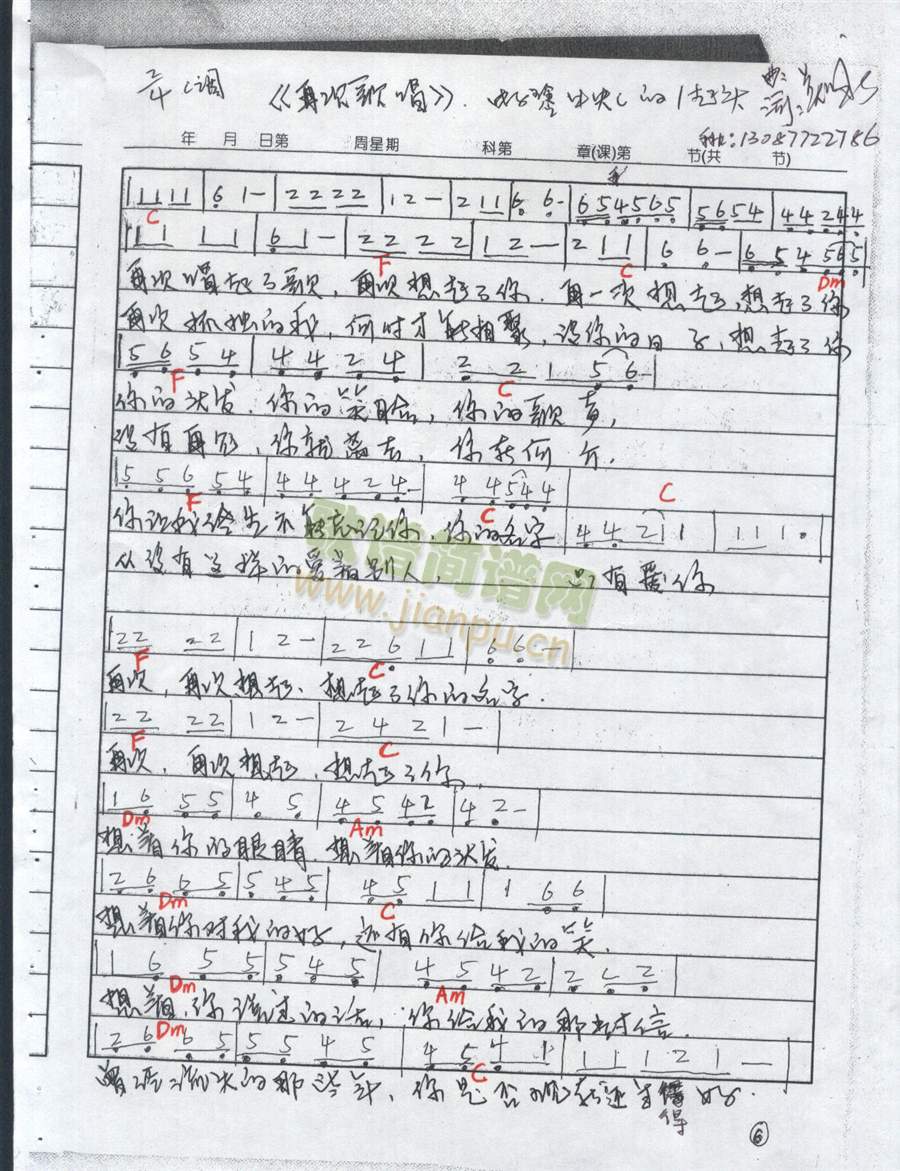 2/4 C调 《再次歌唱》
手机:13087722786
年 月 日第 周星期 科第 章(课)第 节(共 节)
1111 | 6 1- | 2222 | 12- | 211 | 6 6- | 654565 | 5654 | 44244
C
11 11 | 6 1- | 22 22 | 1 2- | 2 11 | 6 6- | 6 5 4 565
F C Dm
再次唱起了歌,再次想起了你.再一次想起,想起了你
再次孤独的我,何时才能相聚,没你的日子,想起了你
5 6 5 4 | 4 4 2 4 | 2 2 1 5 6-
F C
你的头发.你的笑脸,你的歌声,
没有再见,你就离去,你在何方.
5 5 6 5 4 | 4 4 4 2 4 | 4 4 5 4 4
F C C
你说我今生不能忘记你.你的名字 4 4 2 1 1 | 1 1 1.
从没有这样的爱着别人, 只有爱你
歌谱简谱网
www.jianpu.cn
22 22 | 1 2- | 2 2 6 1 1 | 6 6-
F C
再次,再次想起.想起了你的名字.
22 22 | 1 2- | 2 4 2 1-
F C
再次,再次想起,想起了你,
1 6 5 5 | 4 5 | 4 5 4 2 | 4 2-
Dm Am
想着你的眼睛.想着你的头发.
2 6 6 5 | 5 4 5 | 4 5 1 1 | 1 6 6
Dm C
想着你对我的好,还有你给我的笑.
1 6 5 5 | 5 4 5 | 4 5 4 2 | 2 2 2
Dm Am
想着,你说过的话,你给我的那封信.
2 6 6 5 | 5 5 4 5 | 4 5 4 1 | 1 1 1 2 1-
Dm C
曾经流失的那些年,你是否现在还过得好.
得
⑥